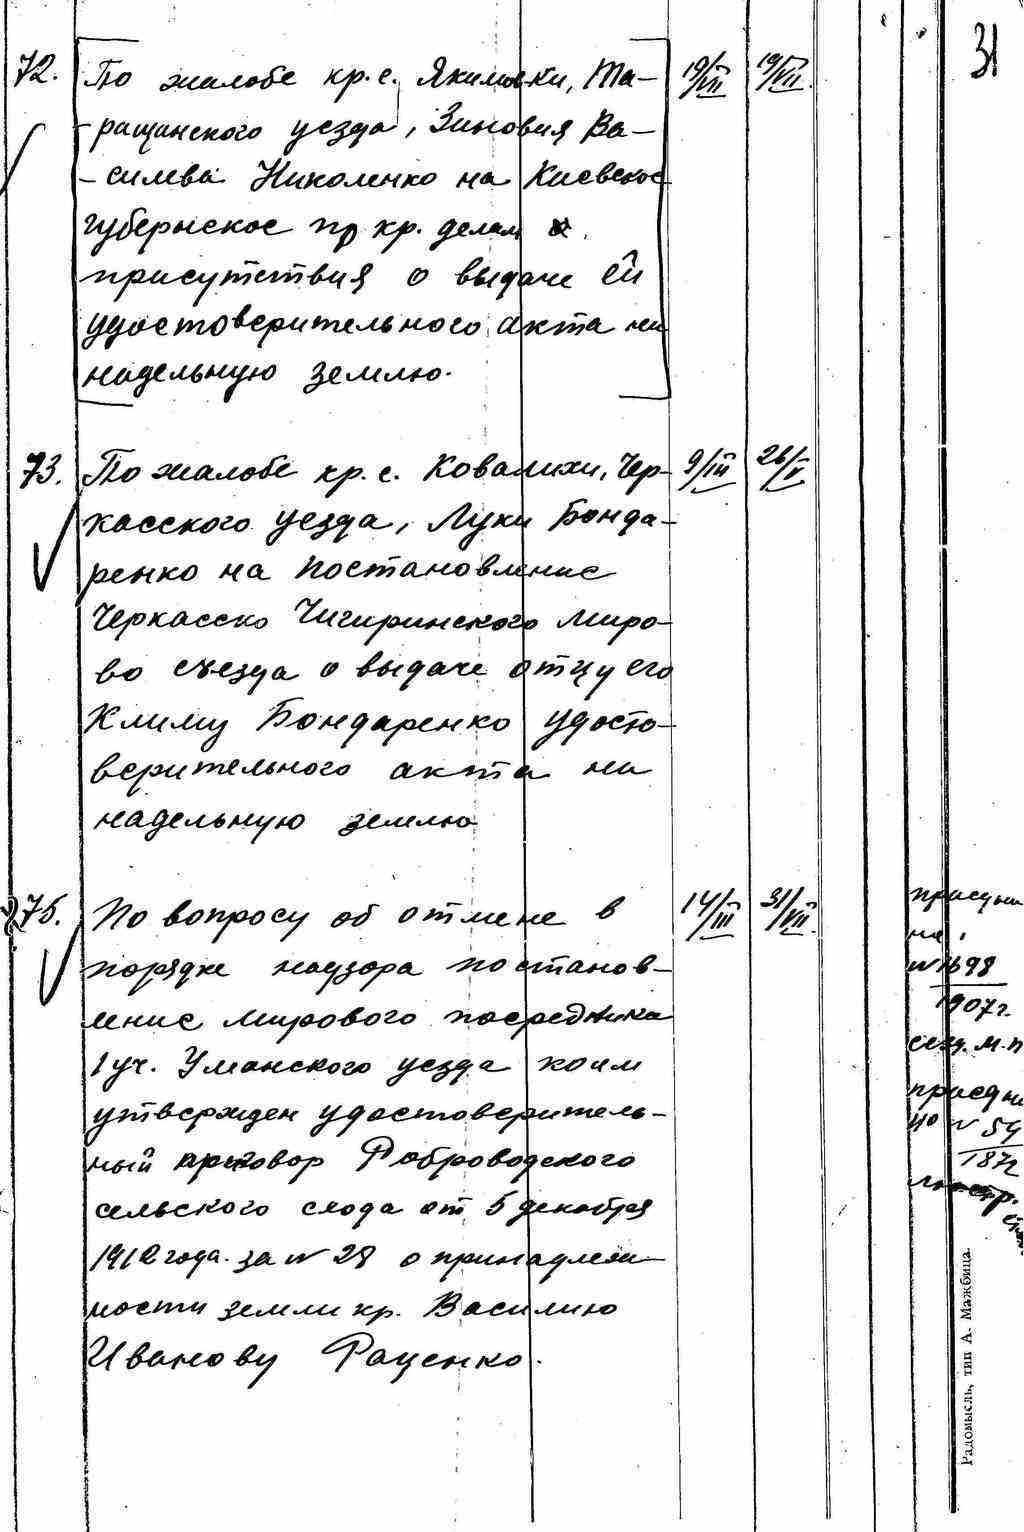 31
72. По жалобе кр. с. Якимовки, Та-
ращанского уезда, Зиновия Ва-
-силева Николенко на Киевское
губернское пр кр. делам
присутствия о выдаче ей
удостоверительного акта на
надельную землю.
19/VII 19/VII.
73. По жалобе кр. с. Ковалихи, Чер-
касского уезда, Луки Бонда-
ренко на постановление
Черкасско Чигиринского миро-
во съезда о выдаче отцу его
Климу Бондаренко удосто-
верительного акта на
надельную землю
9/III 26/V
75. По вопросу об отмене в
порядке надзора постанов-
ление мирового посредника
1 уч. Уманского уезда коим
утвержден удостоверитель-
ный приговор Роброводского
сельского схода от 5 декабря
1912 года за N 28 о принадлеж-
ности земли кр. Василию
Иванову Раценко.
14/III 31/VII.
N 1698
1907г.
м. п
N 54
187
Радомысль, тип А. Мажбица.